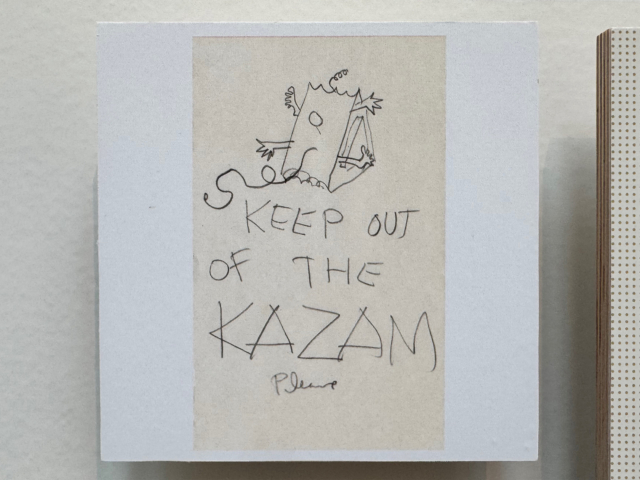 KEEP OUT
OF THE
KAZAM
Please